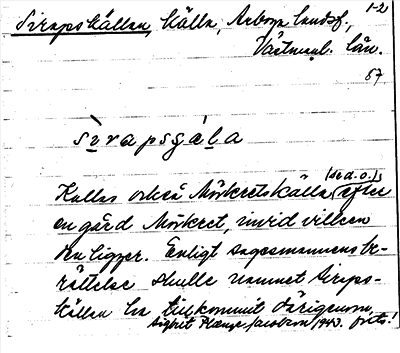 1-2
Sirapskällan, källa, Arboga landsf.,
Västmanl. län.
57
sìrapsçę̀la
Kallas också Mörketskälla (se d.o.), efter
en gård Mörket, invid vilken
den ligger. Enligt sagesmannens be-
rättelse skulle namnet Siraps-
källan ha tillkommit därigenom,
Sigbrit Plænge Jacobson 1943. forts.!